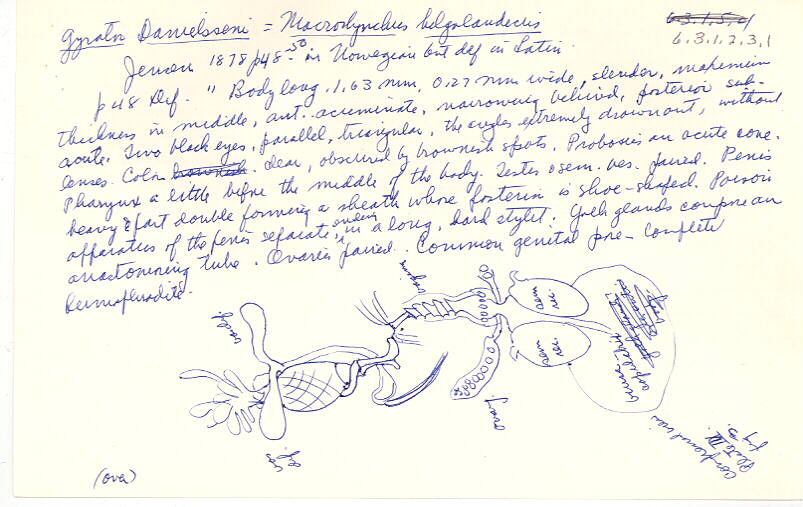 Gyrator Danielsseni = Macrorhynchus helgolandecus
6.3.1.5.01
6.3.1.2.3.1
Jensen 1878 p48-50 in Norwegian but def in Latin
p 48 Def. " Body long. 1.63 mm, 0.27 mm wide, slender, maximum
thickness in middle, ant. acuminate, narrowing behind, posterior sub-
acute. Two black eyes, parallel, triangular, the angles extremely drawn out, without
lenses. Color brownish. clear, obscured by brownish spots. Proboscis an acute cone.
Pharynx a little before the middle of the body. Testes & sem. ves. paired. Penis
heavy & part double forming a sheath whose posterior is shoe-shaped. Poison
apparatus of the penis separate, ending in a long, hard stylet. Yolk glands compose an
anastomosing tube. Ovaries paired. Common genital pore - Complete
hermaphrodite.
vagina
sem
rec.
sem
rec.
bursa
copulatrix
yolk
ovary
vas
def.
Plate IV
fig 3.
(over)